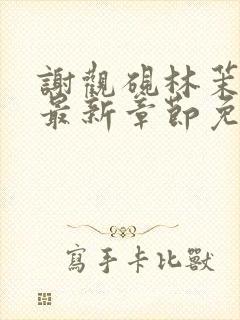 謝觀硯林茉
最新章節免
寫手卡比獸